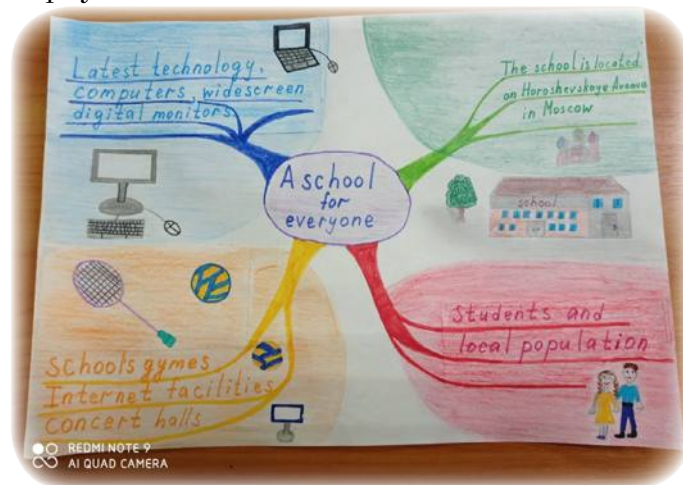 Latest technology,
computers, widescreen
digital monitors
The school is located
on Horoshevskoye Avenue
in Moscow
A school
for
everyone
school
Schools gymes
Internet facilities
concert halls
Students and
local population
REDMI NOTE 9
AI QUAD CAMERA